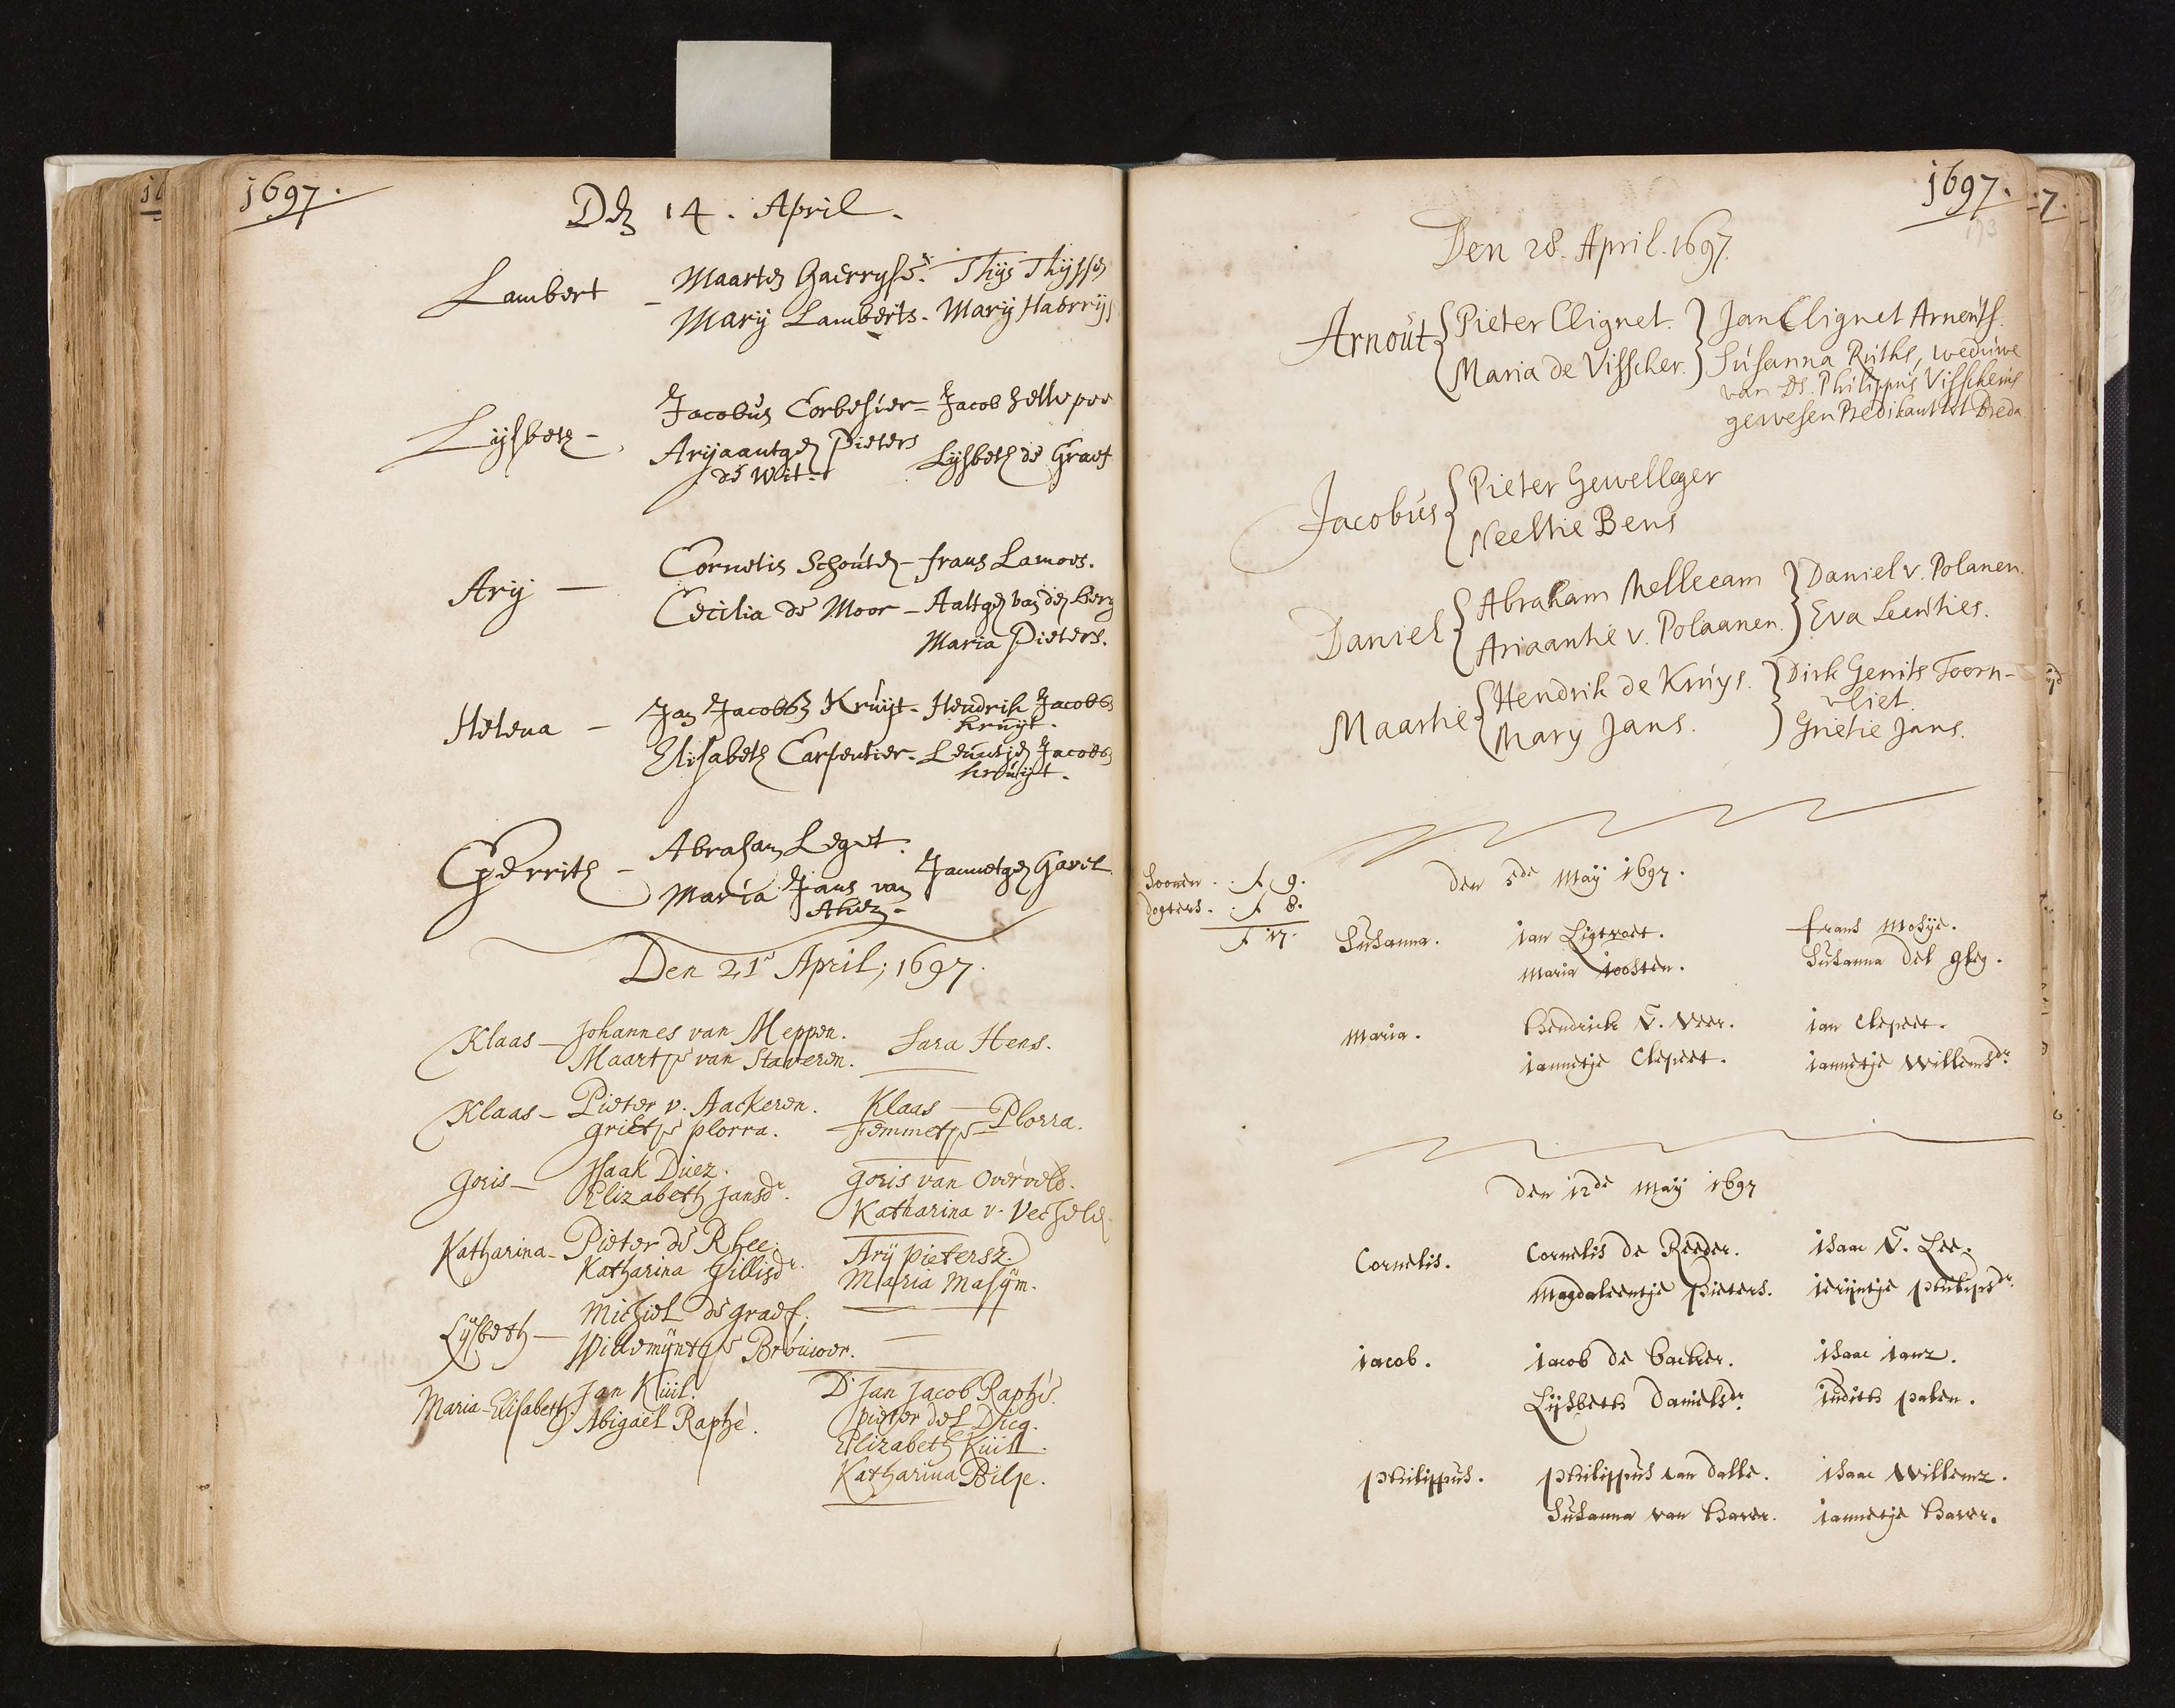 1697.
Den 14. April.
Lambert - Maarten Haerryse. Thijs Thijssen
Marij Lamberts. Marij Haerrijs
Lijsbeth - Jacobus Corbesier - Jacob
Arijaantgen Pieters Lijsbeth de Graef
de Wit.
Arij - Cornelis Schouten - frans Lamoes.
Cecilia de Moor - Aaltgen van den berg
Maria Pieters.
Helena - Jan Jacobsz Kruijt - Hendrik Jacobsz
kruijt.
Elisabeth Carpentier - Leuntjen Jacobs
kruijt.
Gerrith - Abraham Leget. Jannetgen Gavel.
Maria Jans van
Aken.
Den 21e April, 1697.
Klaas - Johannes van Meppen. Sara Hens.
Maartje van Staveren.
Klaas - Pieter v. Aackeren. Klaas - Plorra.
Grietje plorra. Femmetje
Joris - Isaak Duez. Joris van Overveld.
Elizabeth Jansdr. Katharina v. Vechelen.
Katharina - Pieter de Rhee. Arij pietersz.
Katharina Gillisdr. Maria Masijm.
Lijsbeth - Michiel de graef.
Willemijntje Brouwer.
Maria-Elisabeth. Jan Kuil. Ds Jan Jacob Raphé.
Abigaël Raphé. pieter del Dicq.
Elizabeth Kuil.
Katharina Bilje.
1697.
Den 28. April. 1697.
Arnout { Pieter Clignet. } Jan Clignet Arnouts.
Maria de Visscher. Susanna Ruths, weduwe
van Ds Philippus Visscherus
gewesen Predikant tot Breda
Jacobus { Pieter Gewelleger
Neeltie Bens
Daniel { Abraham Melleeam } Daniel v. Polanen.
Ariaantie v. Polaanen. Eva Leenties.
Maartie { Hendrik de Kruys. } Dirk Gerrits Toorn-
vliet.
Mary Jans. Grietie Jans.
Soonen . . 9.
dogters . . 8.
17.
den 5de Maij 1697.
Susanna. ian Ligtvoet. frans Mosije.
Maria ioosten. Susanna del
Maria. Hendrick V. Veer. ian Clepeet.
iannetje Clepeet. iannetje Willemsdr
den 12de Maij 1697
Cornelis. Cornelis de Reeder. isaac V. Lee.
Magdaleentje Pieters. ierijntje philipsdr.
iacob. iacob de backer. isaac ianz.
Lijsbeth Danielsdr. iudith palen.
philippus. philippus van dalle. isaac Willemz.
Susanna van Haver. iannetje Haver.